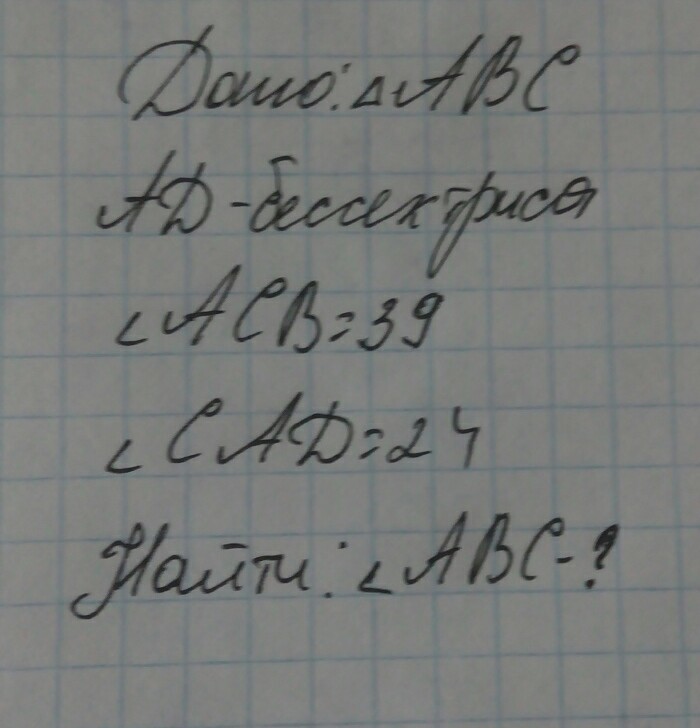 Дано: △ABC
АД-бессектриса
∠ACB=39
∠CAD=24
Найти: ∠ABC-?